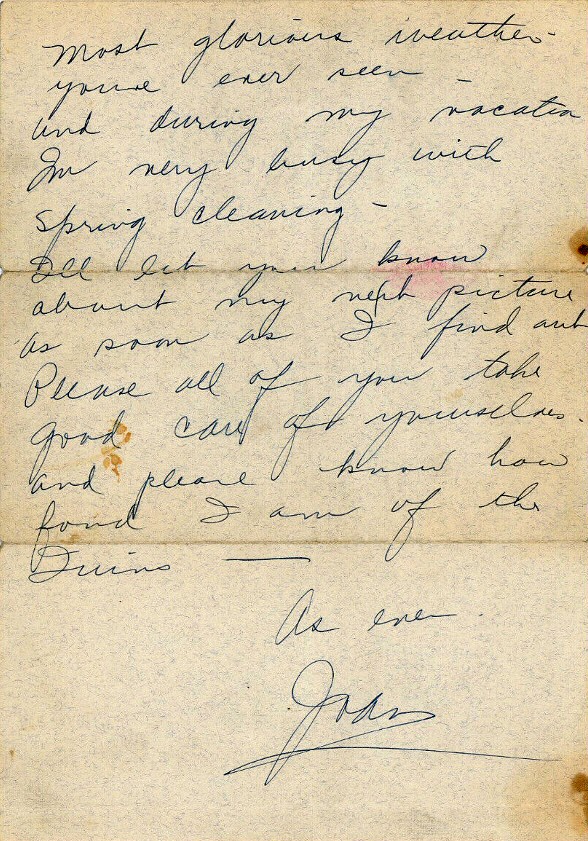 Most glorious weather
you've ever seen -
and during my vacation
I'm very busy with
Spring cleaning -
I'll let you know
about my next picture
as soon as I find out
Please all of you take
good care of yourselves.
and please know how
fond I am of the
—
As ever.
Joan